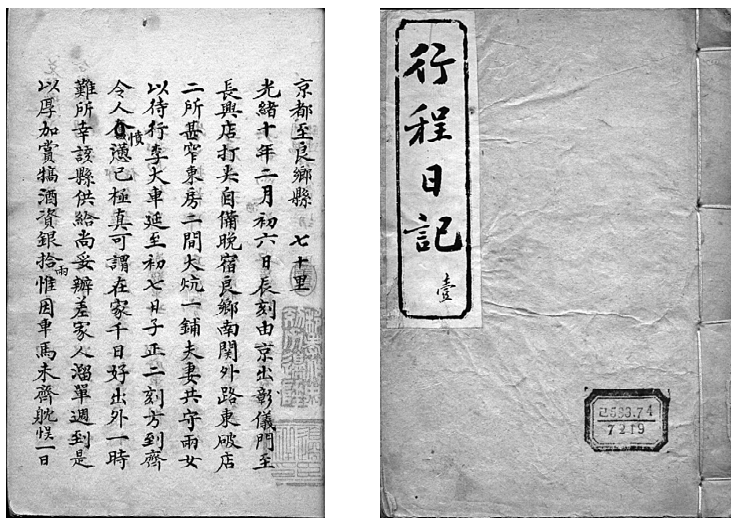 行程日記
壹
己533.74
7219
京都至良鄉縣 七十里
光緒十年二月初六日辰刻由京出彰儀門至
長興店打尖自備晚宿良鄉南関外路東破店
二所甚窄東房二間火炕一鋪夫妻共守兩女
以待行李大車延至初七日子正二刻方到齊
令人憤懣已極真可謂在家千日好出外一時
難所幸該縣供給尚妥辦差家人溜單週到是
以厚加賞犒酒資銀拾兩惟因車馬未齊躭悞一日